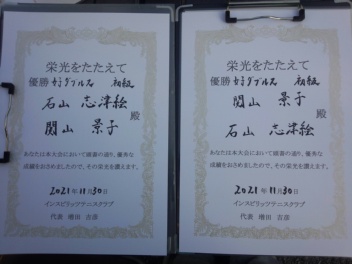 栄光をたたえて
優勝 女子ダブルス 初級
石山 志津絵
関山 景子
殿
あなたは本大会において頭書の通り、優秀な
成績をおさめましたので、その栄光を讃えます。
2021年11月30日
インスピリッツテニスクラブ
代表 増田 吉彦
栄光をたたえて
優勝 女子ダブルス 初級
関山 景子
石山 志津絵
殿
あなたは本大会において頭書の通り、優秀な
成績をおさめましたので、その栄光を讃えます。
2021年11月30日
インスピリッツテニスクラブ
代表 増田 吉彦